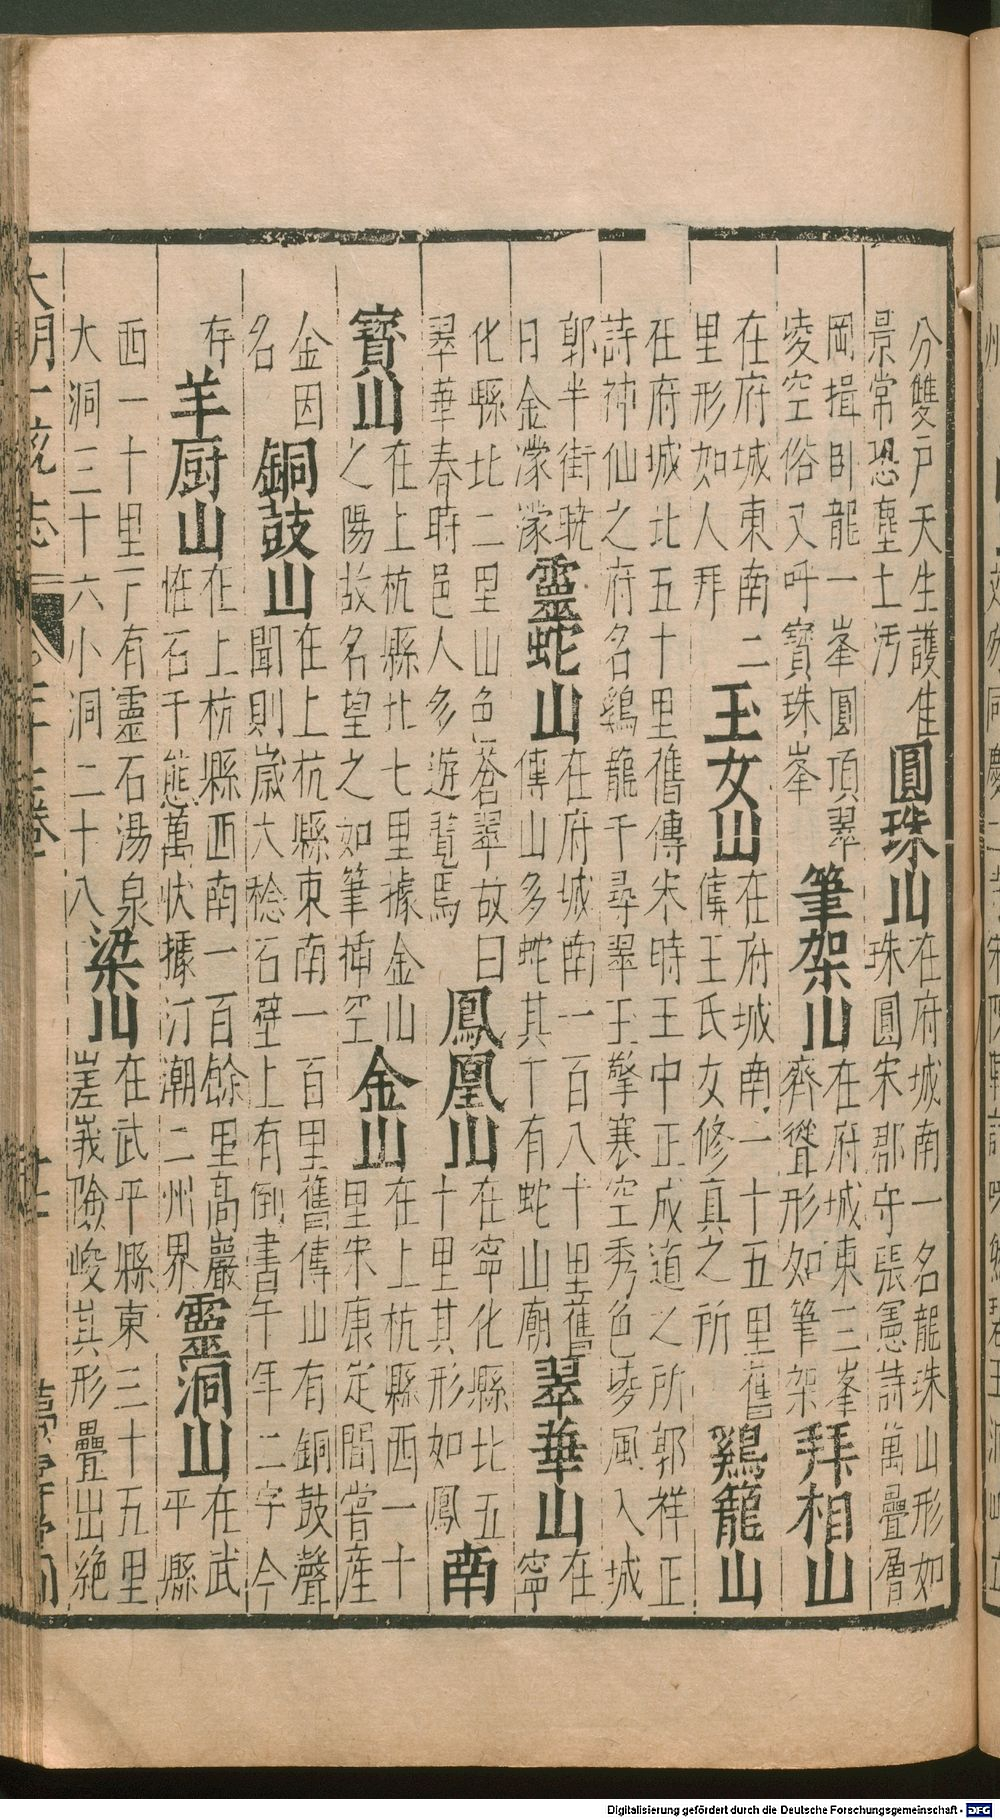 分雙戶天生護隹景常恐塵土汚圓珠山在府城南一名龍珠山形如珠圓宋郡守張憲詩萬疊層
岡揖臥龍一峯圓頂翠凌空俗又呼寶珠峯筆架山在府城東三峯齊聳形如筆架拜相山
在府城東南二里形如人拜玉女山在府城南一十五里舊傳王氏女修真之所鷄籠山
在府城北五十里舊傳宋時王中正成道之所郭祥正詩神仙之府名鷄籠千尋翠玉擎寒空秀色夌風入城
郭半街曉日金濛濛靈蛇山在府城南一百八十里舊傳山多蛇其下有蛇山廟翠華山在寧
化縣北二里山色蒼翠故曰翠華春時邑人多遊覽焉鳳凰山在寧化縣北五十里其形如鳳南
寶山在上杭縣北七里據金山之陽故名望之如筆揷空金山在上杭縣西一十里宋康定間嘗産
金因名銅鼓山在上杭縣東南一百里舊傳山有銅鼓聲聞則歲大稔石壁上有倒書午年二字今
存羊厨山在上杭縣西南一百餘里高巖惟石千態萬狀據汀潮二州界靈洞山在武平縣
西一十里下有靈石湯泉大洞三十六小洞二十八梁山在武平縣東三十五里嵳峩險峻其形疊出絶
大明一統志
Digitalisierung gefördert durch die Deutsche Forschungsgemeinschaft - DFG